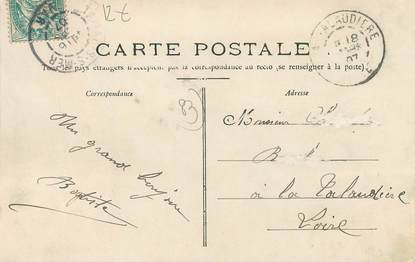 12€
LA TALAUDIÈRE
18
07
CARTE POSTALE
Tous les pays étrangers n'acceptent pas la correspondance au recto (se renseigner à la poste)
Correspondance
Adresse
83
Un grand bonjour
Baptiste
Monsieur
à la Talaudière
Loire